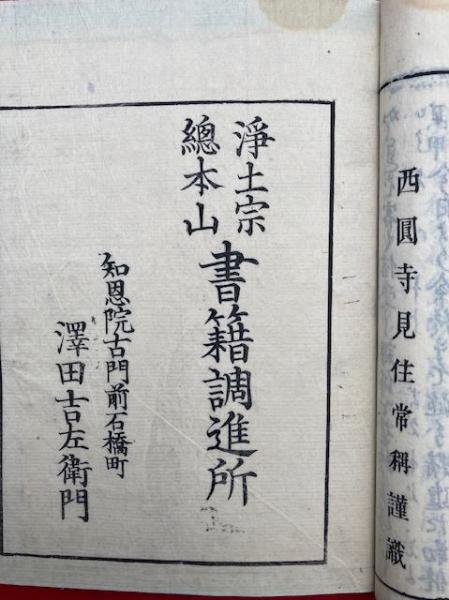 西圓寺見住常稱謹識
淨土宗
總本山
書籍調進所
知恩院古門前石橋町
澤田吉左衛門